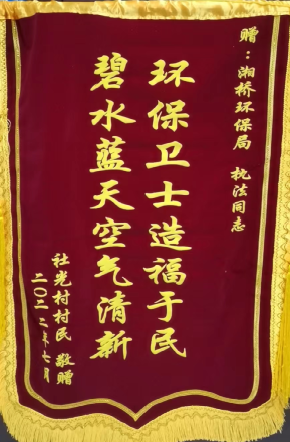 赠：湘桥环保局 执法同志
环保卫士造福于民
碧水蓝天空气清新
社光村村民 敬赠
二〇二二年七月